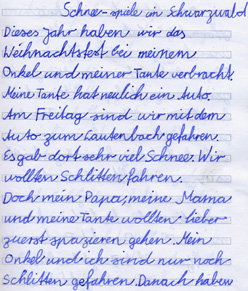 Schnee-spiele in Schwarzwald
Dieses Jahr haben wir das
Weihnachtsfest bei meinem
Onkel und meiner Tante verbracht.
Meine Tante hat neulich ein Auto.
Am Freitag sind wir mit dem
Auto zum Lautenbach gefahren.
Es gab dort sehr viel Schnee. Wir
wollten Schlitten fahren.
Doch mein Papa, meine Mama
und meine Tante wollten lieber
zuerst spazieren gehen. Mein
Onkel und ich sind nur noch
Schlitten gefahren. Danach haben